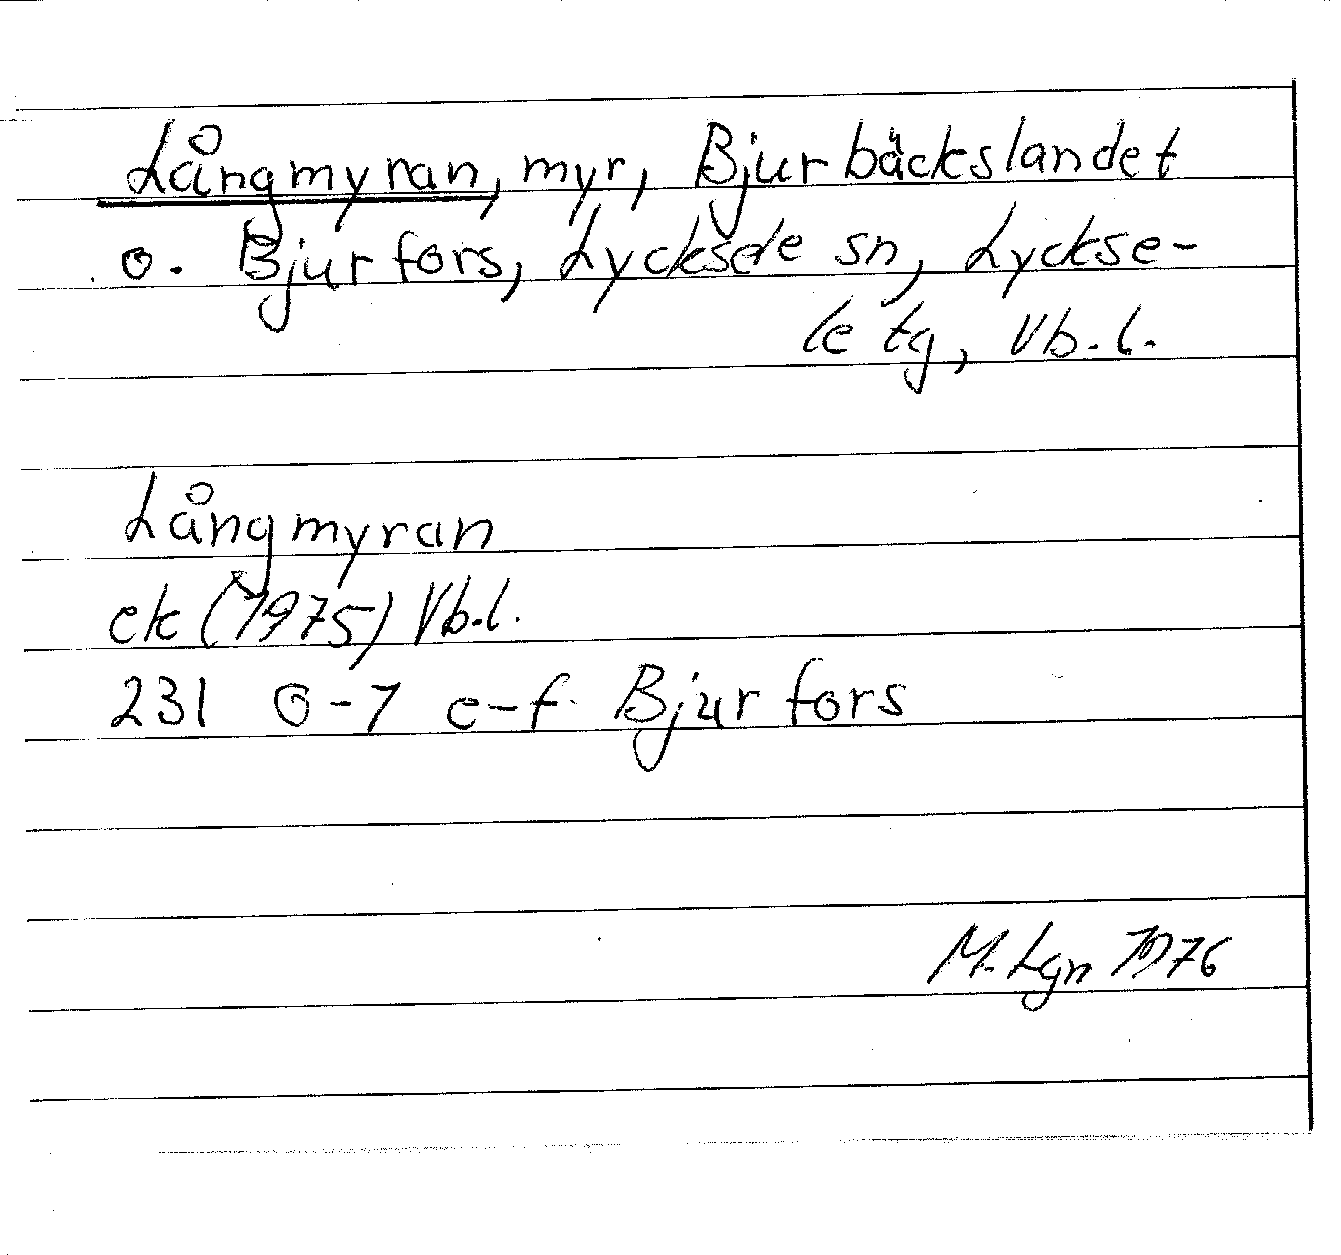 Långmyran, myr, Bjurbäckslandet
o. Bjurfors, Lycksele sn, Lyckse-
le tg, Vb.l.
Långmyran
ek (1975) Vb.l.
231 6-7 e-f Bjurfors
M. Lgn 1976